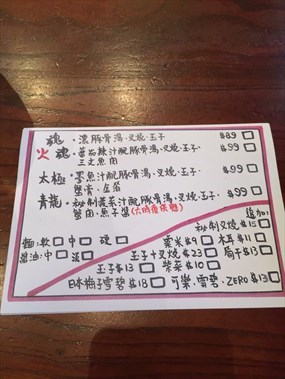 魂・濃豚骨湯、叉燒、玉子 $89 □
火魂・蕃茄辣汁配豚骨湯、叉燒、玉子、 $99 □
三文魚肉
太極・墨魚汁配豚骨湯、叉燒、玉子、 $99 □
蟹膏、金箔
青龍・秘制蔬菜汁配豚骨湯、叉燒、玉子、 $99 □
蟹肉、魚子醬
追加:
秘制叉燒 $15 □
麵:軟 □ 中 □ 硬 □
粟米 $9 □ 木耳 $11 □
醬油:中 □ 淡 □
玉子+叉燒 $23 □ 筍干 $13 □
玉子 $13 □ 紫菜 $10 □
日本梅子雪碧 $18 □ 可樂、雪碧、ZERO $13 □